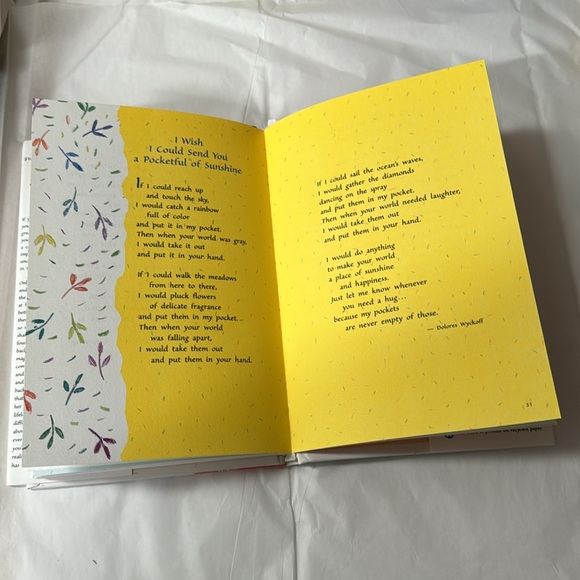 I Wish
I Could Send You
a Pocketful of Sunshine
If I could reach up
and touch the sky,
I would catch a rainbow
full of color
and put it in my pocket.
Then when your world was gray,
I would take it out
and put it in your hand.
If I could walk the meadows
from here to there,
I would pluck flowers
of delicate fragrance
and put them in my pocket...
Then when your world
was falling apart,
I would take them out
and put them in your hand.
If I could sail the ocean's waves,
I would gather the diamonds
dancing on the spray
and put them in my pocket.
Then when your world needed laughter,
I would take them out
and put them in your hand.
I would do anything
to make your world
a place of sunshine
and happiness.
Just let me know whenever
you need a hug...
because my pockets
are never empty of those.
— Dolores Wyckoff
51